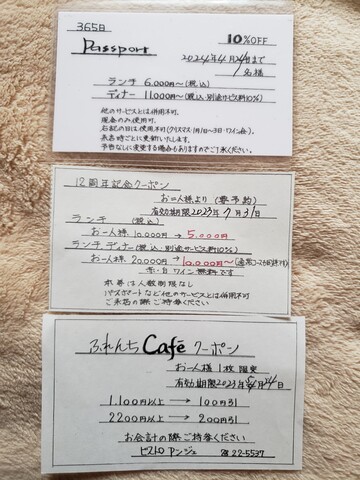 365日
Passport 10%OFF
2024年4月24日まで
1名様
ランチ 6,000円〜(税込)
ディナー 11,000円〜(税込、別途サービス料10%)
他のサービスとは併用不可。
現金のみ使用可。
右記の日は使用不可(クリスマス・1月1日〜3日・ワイン会)。
来店時ごとに更新いたします。
予告なしに変更する場合もありますのでご了承ください。
12周年記念クーポン
お二人様より (要予約)
有効期限2023年7月31日
ランチ (税込)
お一人様 10,000円 → 5,000円
ランチ、ディナー(税込、別途サービス料10%)
お一人様 20,000円 → 10,000円〜
赤・白ワイン無料です
本券は人数制限なし
パスポートなど他のサービスとは併用不可
ご来店の際ご持参ください
ふれんち Café クーポン
お一人様1枚限定
有効期限2023年4月24日
1,100円以上 → 100円引
2200円以上 → 200円引
お会計の際ご持参ください
ビストロ アンジュ ☎22-5537